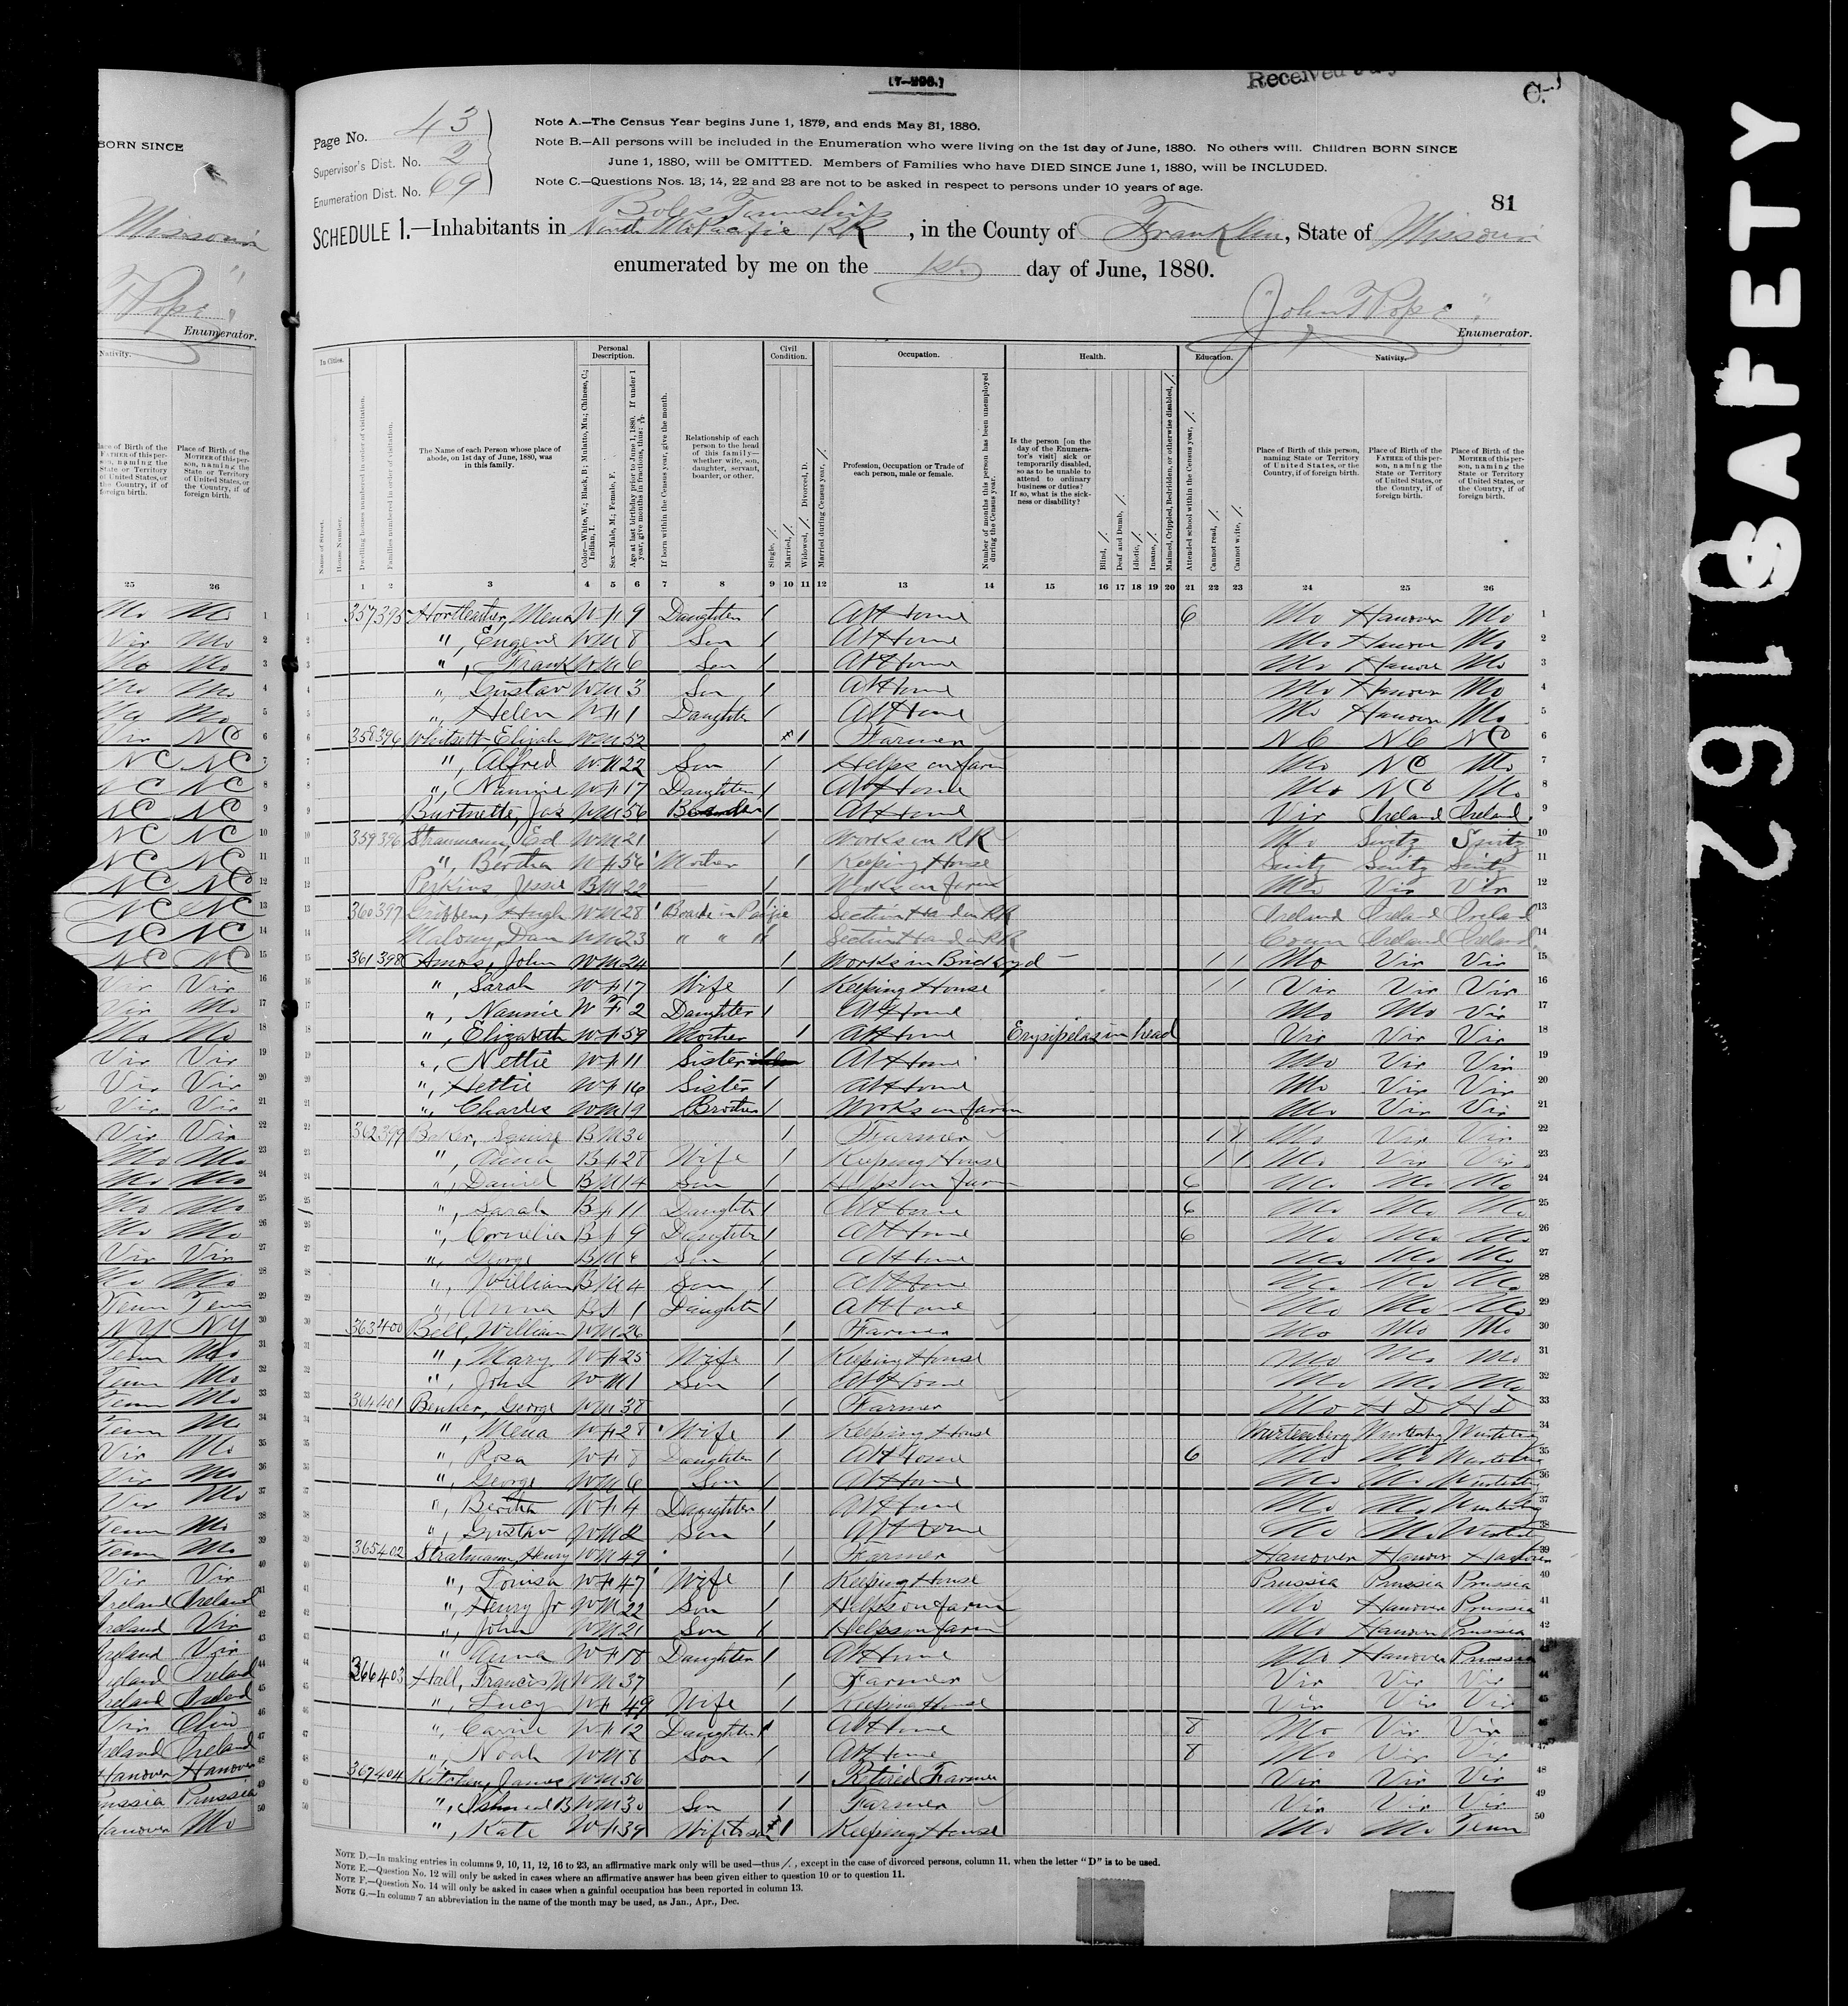 [7-296.]
Received July
C.
Page No. 43
Supervisor's Dist. No. 2
Enumeration Dist. No. 69
Note A.—The Census Year begins June 1, 1879, and ends May 31, 1880.
Note B.—All persons will be included in the Enumeration who were living on the 1st day of June, 1880. No others will. Children BORN SINCE
June 1, 1880, will be OMITTED. Members of Families who have DIED SINCE June 1, 1880, will be INCLUDED.
Note C.—Questions Nos. 13, 14, 22 and 23 are not to be asked in respect to persons under 10 years of age.
81
Boles Township
SCHEDULE 1.—Inhabitants in North Mo Pacific RR, in the County of Franklin, State of Missouri
enumerated by me on the 1st day of June, 1880.
"John T Pope"
Enumerator.
In Cities. Personal Description. Civil Condition. Occupation. Health. Education. Nativity.
Name of Street.
House Number.
Dwelling houses numbered in order of visitation.
Families numbered in order of visitation.
The Name of each Person whose place of abode, on 1st day of June, 1880, was in this family.
Color—White, W.; Black, B.; Mulatto, Mu.; Chinese, C.; Indian, I.
Sex—Male, M.; Female, F.
Age at last birthday prior to June 1, 1880. If under 1 year, give months in fractions, thus: 3/12.
If born within the Census year, give the month.
Relationship of each person to the head of this family—whether wife, son, daughter, servant, boarder, or other.
Single, /.
Married, /.
Widowed, /. Divorced, D.
Married during Census year, /.
Profession, Occupation or Trade of each person, male or female.
Number of months this person has been unemployed during the Census year.
Is the person [on the day of the Enumerator's visit] sick or temporarily disabled, so as to be unable to attend to ordinary business or duties? If so, what is the sickness or disability?
Blind, /.
Deaf and Dumb, /.
Idiotic, /.
Insane, /.
Maimed, Crippled, Bedridden, or otherwise disabled, /.
Attended school within the Census year, /.
Cannot read, /.
Cannot write, /.
Place of Birth of this person, naming State or Territory of United States, or the Country, if of foreign birth.
Place of Birth of the FATHER of this person, naming the State or Territory of United States, or the Country, if of foreign birth.
Place of Birth of the MOTHER of this person, naming the State or Territory of United States, or the Country, if of foreign birth.
1 2 3 4 5 6 7 8 9 10 11 12 13 14 15 16 17 18 19 20 21 22 23 24 25 26
1 357 395 Mena W F 9 Daughter / At Home 6 Mo Hanover Mo 1
2 ", Eugene W M 8 Son / At Home Mo Hanover Mo 2
3 ", Frank W M 6 Son / At Home Mo Hanover Mo 3
4 ", Gustav W M 3 Son / At Home Mo Hanover Mo 4
5 ", Helen W F 1 Daughter / At Home Mo Hanover Mo 5
6 358 396 Whitsett, Elijah W M 52 / Farmer NC NC NC 6
7 ", Alfred W M 22 Son / Helps on farm Mo NC Mo 7
8 ", Nannie W F 17 Daughter / At Home Mo NC Mo 8
9 Burtnette, Jas W M 56 Boarder / At Home Vir Ireland Ireland 9
10 359 396 Straumann, Ed W M 21 / Works on RR Mo Switz Switz 10
11 ", Bertha W F 56 Mother / Keeping House Switz Switz Switz 11
12 Perkins Jessie B M 22 — / Works on farm Mo Vir Vir 12
13 360 397 Gribben, Hugh W M 28 Boards in Pacific Section Hand on RR Ireland Ireland Ireland 13
14 Malony, Dan W M 23 " " " Section Hand on RR Conn Ireland Ireland 14
15 361 398 Amos, John W M 24 / Works in Brickyd — / / Mo Vir Vir 15
16 ", Sarah W F 17 Wife / Keeping House / / Vir Vir Vir 16
17 ", Nannie W F 2 Daughter / At Home Mo Mo Vir 17
18 ", Elizabeth W F 59 Mother / At Home Erysipelas in head Vir Vir Vir 18
19 ", Nettie W F 11 Sister At Home Mo Vir Vir 19
20 ", Hettie W F 16 Sister / At Home Mo Vir Vir 20
21 ", Charles W M 19 Brother / Works on farm Mo Vir Vir 21
22 362 399 Baker, Squire B M 30 / Farmer / / Mo Vir Vir 22
23 ", Anna B F 28 Wife / Keeping House / / Mo Vir Vir 23
24 ", Daniel B M 14 Son / Helps on farm 6 Mo Mo Mo 24
25 ", Sarah B F 11 Daughter / At Home 6 Mo Mo Mo 25
26 ", Cornelia B F 9 Daughter / At Home 6 Mo Mo Mo 26
27 ", George B M 6 Son / At Home Mo Mo Mo 27
28 ", William B M 4 Son / At Home Mo Mo Mo 28
29 ", Anna B F 1 Daughter / At Home Mo Mo Mo 29
30 363 400 Bell, William W M 26 / Farmer Mo Mo Mo 30
31 ", Mary W F 25 Wife / Keeping House Mo Mo Mo 31
32 ", John W M 1 Son / At Home Mo Mo Mo 32
33 364 401 Benker, George W M 38 / Farmer Mo H D H D 33
34 ", Mena W F 28 Wife / Keeping House Wurtenberg Wurtenbg Wurtenbg 34
35 ", Rosa W F 8 Daughter / At Home 6 Mo Mo Wurtenbg 35
36 ", George W M 6 Son / At Home Mo Mo Wurtenbg 36
37 ", Bertha W F 4 Daughter / At Home Mo Mo Wurtenbg 37
38 ", Gustav W M 2 Son / At Home Mo Mo Wurtenbg 38
39 365 402 Stratmann, Henry W M 49 / Farmer Hanover Hanover Hanover 39
40 ", Louisa W F 47 Wife / Keeping House Prussia Prussia Prussia 40
41 ", Henry Jr W M 22 Son / Helps on farm Mo Hanover Prussia 41
42 ", John W M 21 Son / Helps on farm Mo Hanover Prussia 42
43 ", Anna W F 18 Daughter / At Home Mo Hanover Prussia 43
44 366 403 Hall, Francis M W M 37 / Farmer Vir Vir Vir 44
45 ", Lucy W F 49 Wife / Keeping House Vir Vir Vir 45
46 ", Carrie W F 12 Daughter / At Home 8 Mo Vir Vir 46
47 ", Noah W M 8 Son / At Home 8 Mo Vir Vir 47
48 367 404 Kitchen, James W M 56 / Retired Farmer Vir Vir Vir 48
49 ", Ishmeal B W M 30 Son / Farmer Vir Vir Vir 49
50 ", Kate W F 39 Wife to son / Keeping House Mo Mo Tenn 50
NOTE D.—In making entries in columns 9, 10, 11, 12, 16 to 23, an affirmative mark only will be used—thus /., except in the case of divorced persons, column 11, when the letter "D" is to be used.
NOTE E.—Question No. 12 will only be asked in cases where an affirmative answer has been given either to question 10 or to question 11.
NOTE F.—Question No. 14 will only be asked in cases when a gainful occupation has been reported in column 13.
NOTE G.—In column 7 an abbreviation in the name of the month may be used, as Jan., Apr., Dec.
BORN SINCE
Missouri
T Pope"
Enumerator.
Nativity.
SAFETY